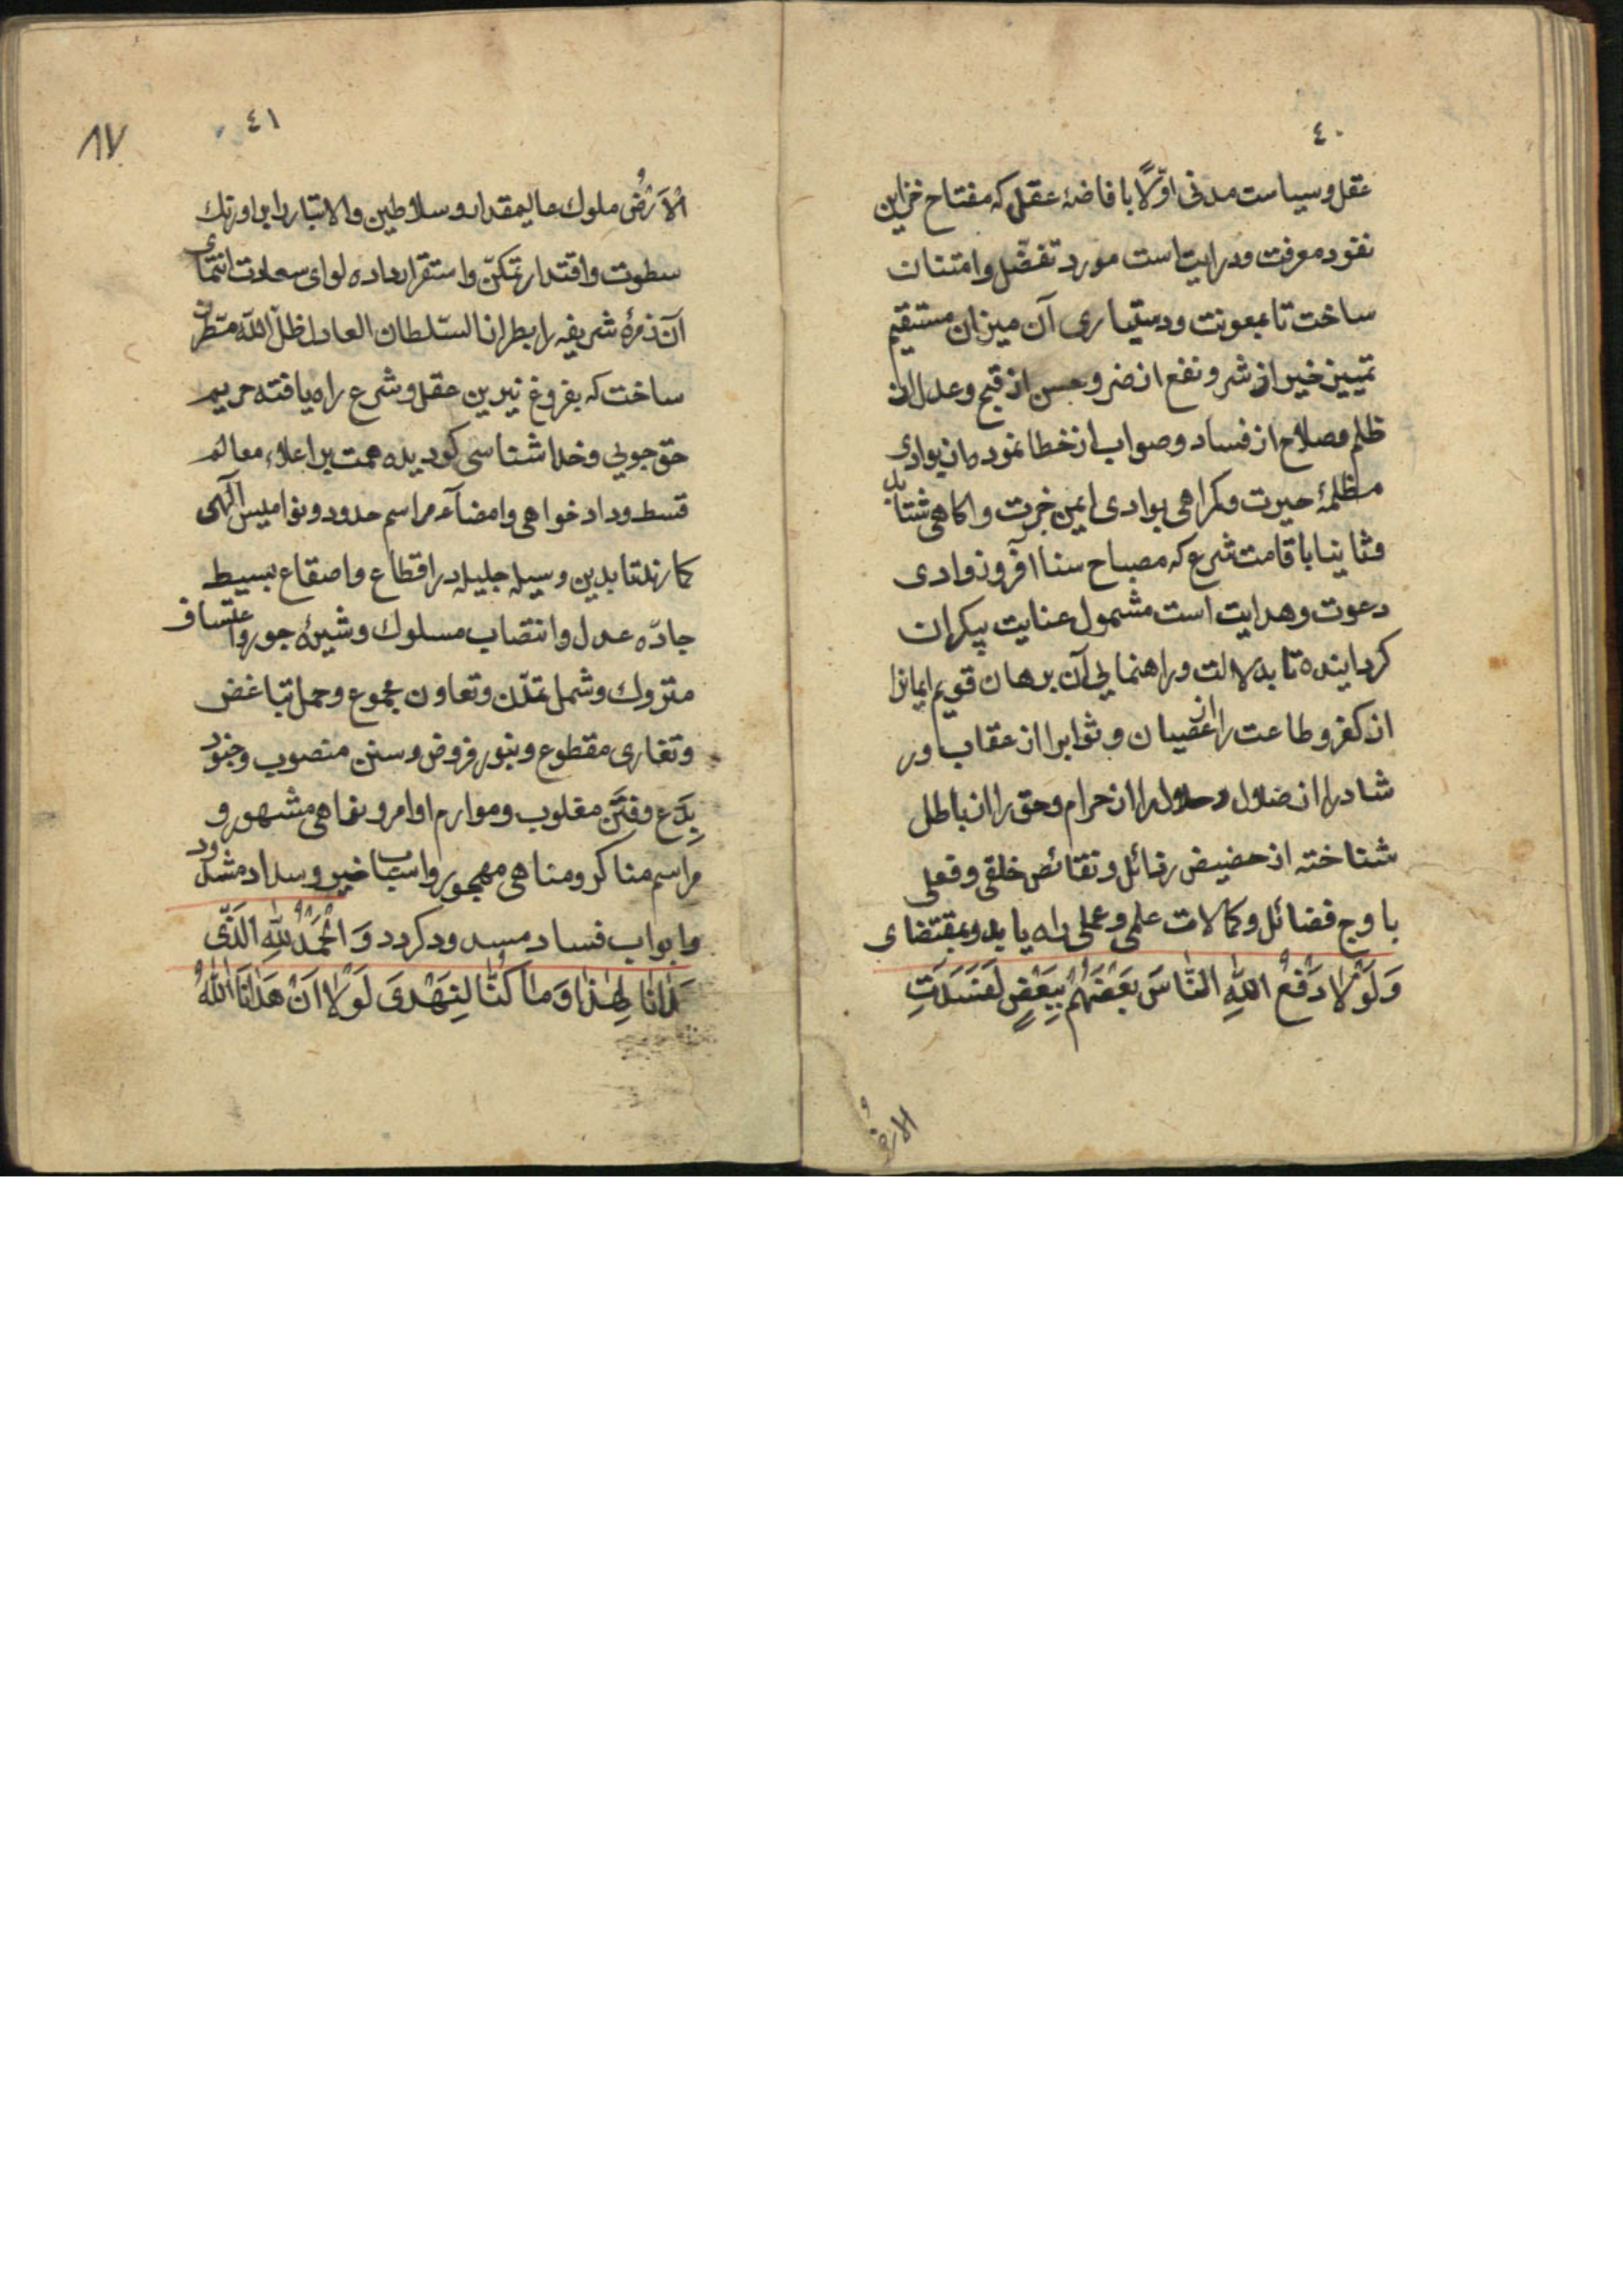 ٤٠
عقل و سیاست مدنی اوّلاً با فاضهٔ عقل که مفتاح خزاین
نقود معرفت و درایت است مورد تفضّل و امتنان
ساخت تا بمعونت و دستیاری آن میزان مستقیم
تمییز خیر از شر و نفع از ضر و حسن از قبح و عدل از
ظلم و صلاح از فساد و صواب از خطا نموده از بوادی
مظلمهٔ حیرت و کمراهی بوادی ایمن خبرت و اکاهی شتابد
و ثانیا باقامت شرع که مصباح سنا افروز وادی
دعوت و هدایت است مشمول عنایت بیکران
کردانیده تا بدلالت و راهنمایی آن برهان قویم ایمانرا
از کفر و طاعت را از عصیان و ثوابرا از عقاب و ر
شاد را از ضلال و حلال را از حرام و حق را از باطل
شناخته از حضیض رذائل و نقائص خلقی و فعلی
باوج فضائل و کمالات علمی و عملی راه یابد و بمقتضای
وَلَوْلَا دَفْعُ اللّٰهِ النَّاسَ بَعْضَهُمْ بِبَعْضٍ لَفَسَدَتِ
الارض
٤١
٨٧
الْاَرْضُ ملوک عالیمقدار و سلاطین والاتبار را بر اورنک
سطوت و اقتدار تمکّن و استقرار داده لوای سعادت انتمای
آن زمرهٔ شریفه را بطراز السّلطان العادل ظلّ اللّه مطرز
ساخت که بفروغ نیرین عقل و شرع راه یافته حریم
حق جویی و خدا شناسی کردیده همت بر اعلاء معالم
قسط و داد خواهی و امضآء مراسم حدود و نوامیس الٓهی
کمارند تا بدین وسیلهٔ جلیله در اقطاع و اصقاع بسیط
جادّه عدل و انتصاب مسلوک و شیوهٔ جور و اعتساف
متروک و شمل تمدّن و تعاون مجموع و حمل تباغض
و تغاری مقطوع و بنور فروض و سنن منصوب و جنود
بِدَع و فِتَن مقلوب و موارم اوامر و نواهی مشهور و
مراسم مناکر و مناهی مهجور و اسباب خیر و سداد مشدود
و ابواب فساد مسدود کردد وَ الْحَمْدُ لِلّٰهِ الَّذٖی
هَدٰانٰا لِهٰذٰا وَ مٰا کُنَّا لِنَهْتَدِیَ لَوْلٰا اَنْ هَدٰانَا اللّٰهُ